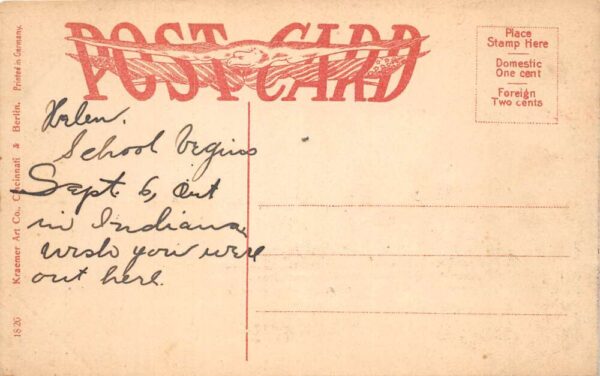 POST CARD
Place
Stamp Here
Domestic
One cent
Foreign
Two cents
Helen.
School begins
Sept. 6, out
in Indiana.
wish you were
out here.
1826 Kraemer Art Co., Cincinnati & Berlin. Printed in Germany.